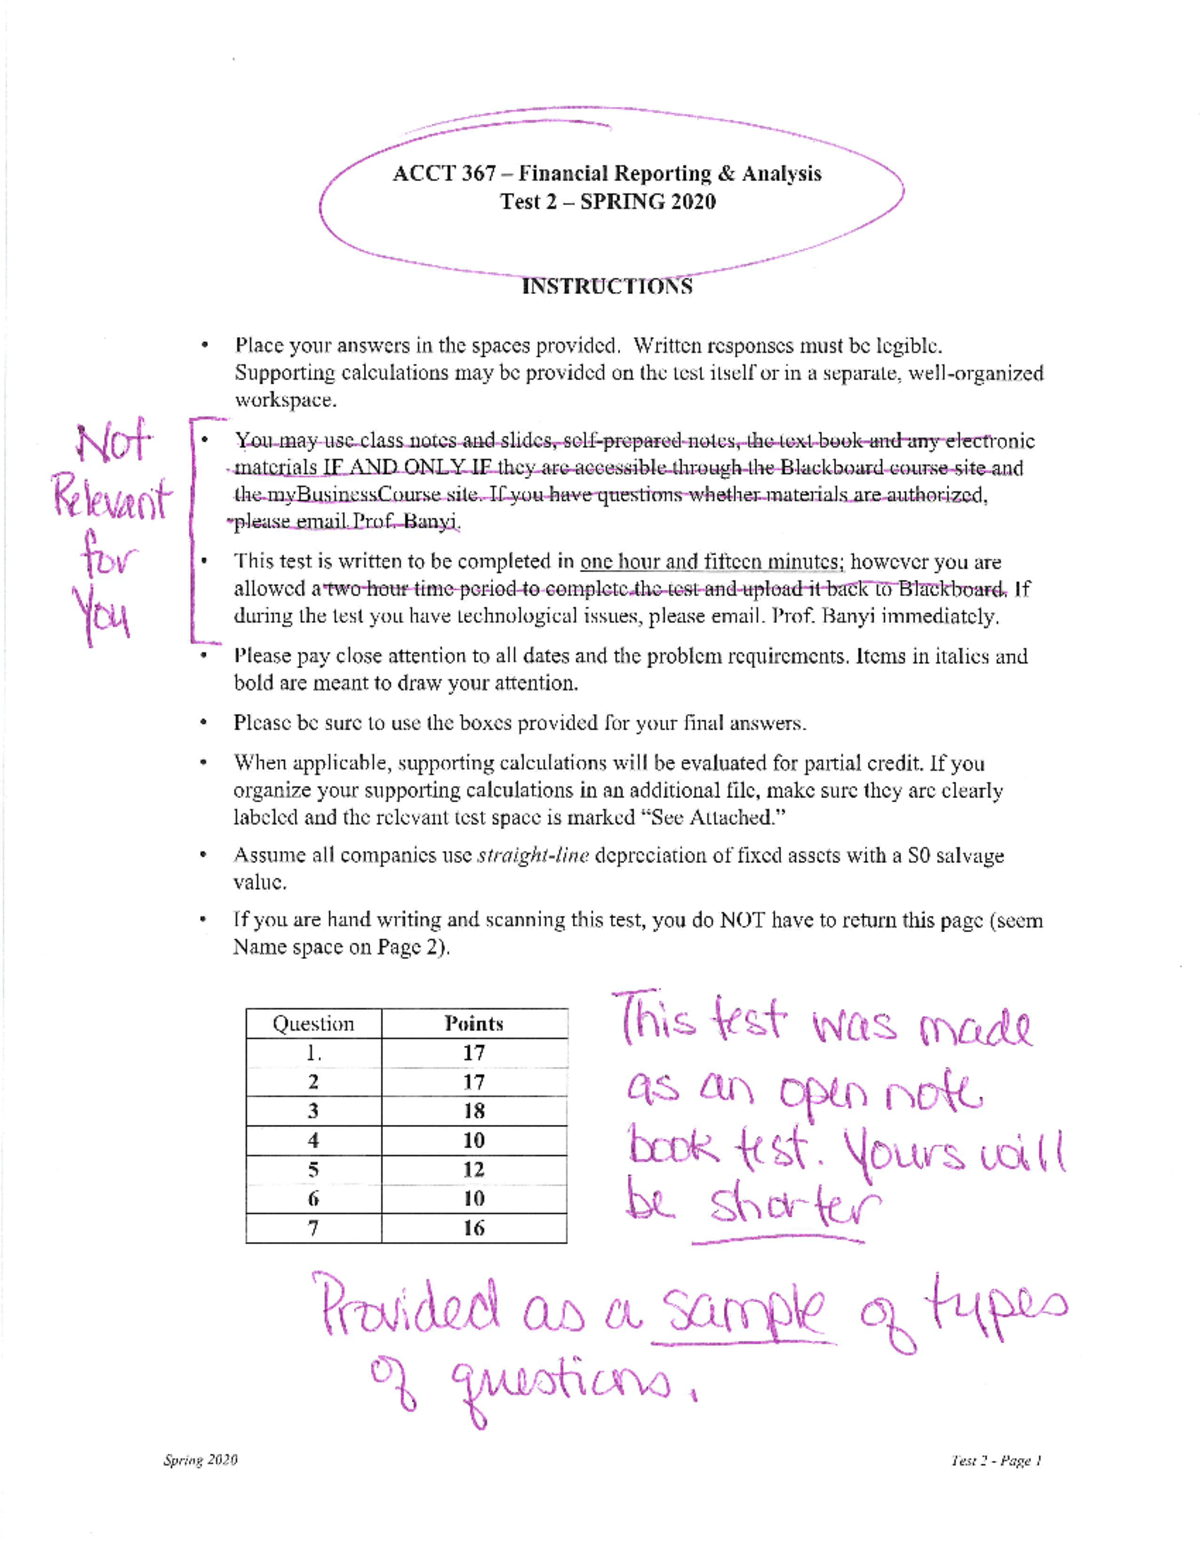 ACCT 367 – Financial Reporting & Analysis
Test 2 – SPRING 2020
INSTRUCTIONS
• Place your answers in the spaces provided. Written responses must be legible.
Supporting calculations may be provided on the test itself or in a separate, well-organized
workspace.
Not
Relevant
for
You
• You may use class notes and slides, self-prepared notes, the text book and any electronic
materials IF AND ONLY IF they are accessible through the Blackboard course site and
the myBusinessCourse site. If you have questions whether materials are authorized,
please email Prof. Banyi.
• This test is written to be completed in one hour and fifteen minutes; however you are
allowed a two hour time period to complete the test and upload it back to Blackboard. If
during the test you have technological issues, please email. Prof. Banyi immediately.
• Please pay close attention to all dates and the problem requirements. Items in italics and
bold are meant to draw your attention.
• Please be sure to use the boxes provided for your final answers.
• When applicable, supporting calculations will be evaluated for partial credit. If you
organize your supporting calculations in an additional file, make sure they are clearly
labeled and the relevant test space is marked “See Attached.”
• Assume all companies use straight-line depreciation of fixed assets with a $0 salvage
value.
• If you are hand writing and scanning this test, you do NOT have to return this page (seem
Name space on Page 2).
Question Points
1. 17
2 17
3 18
4 10
5 12
6 10
7 16
This test was made
as an open note
book test. Yours will
be shorter
Provided as a sample of types
of questions.
Spring 2020 Test 2 - Page 1